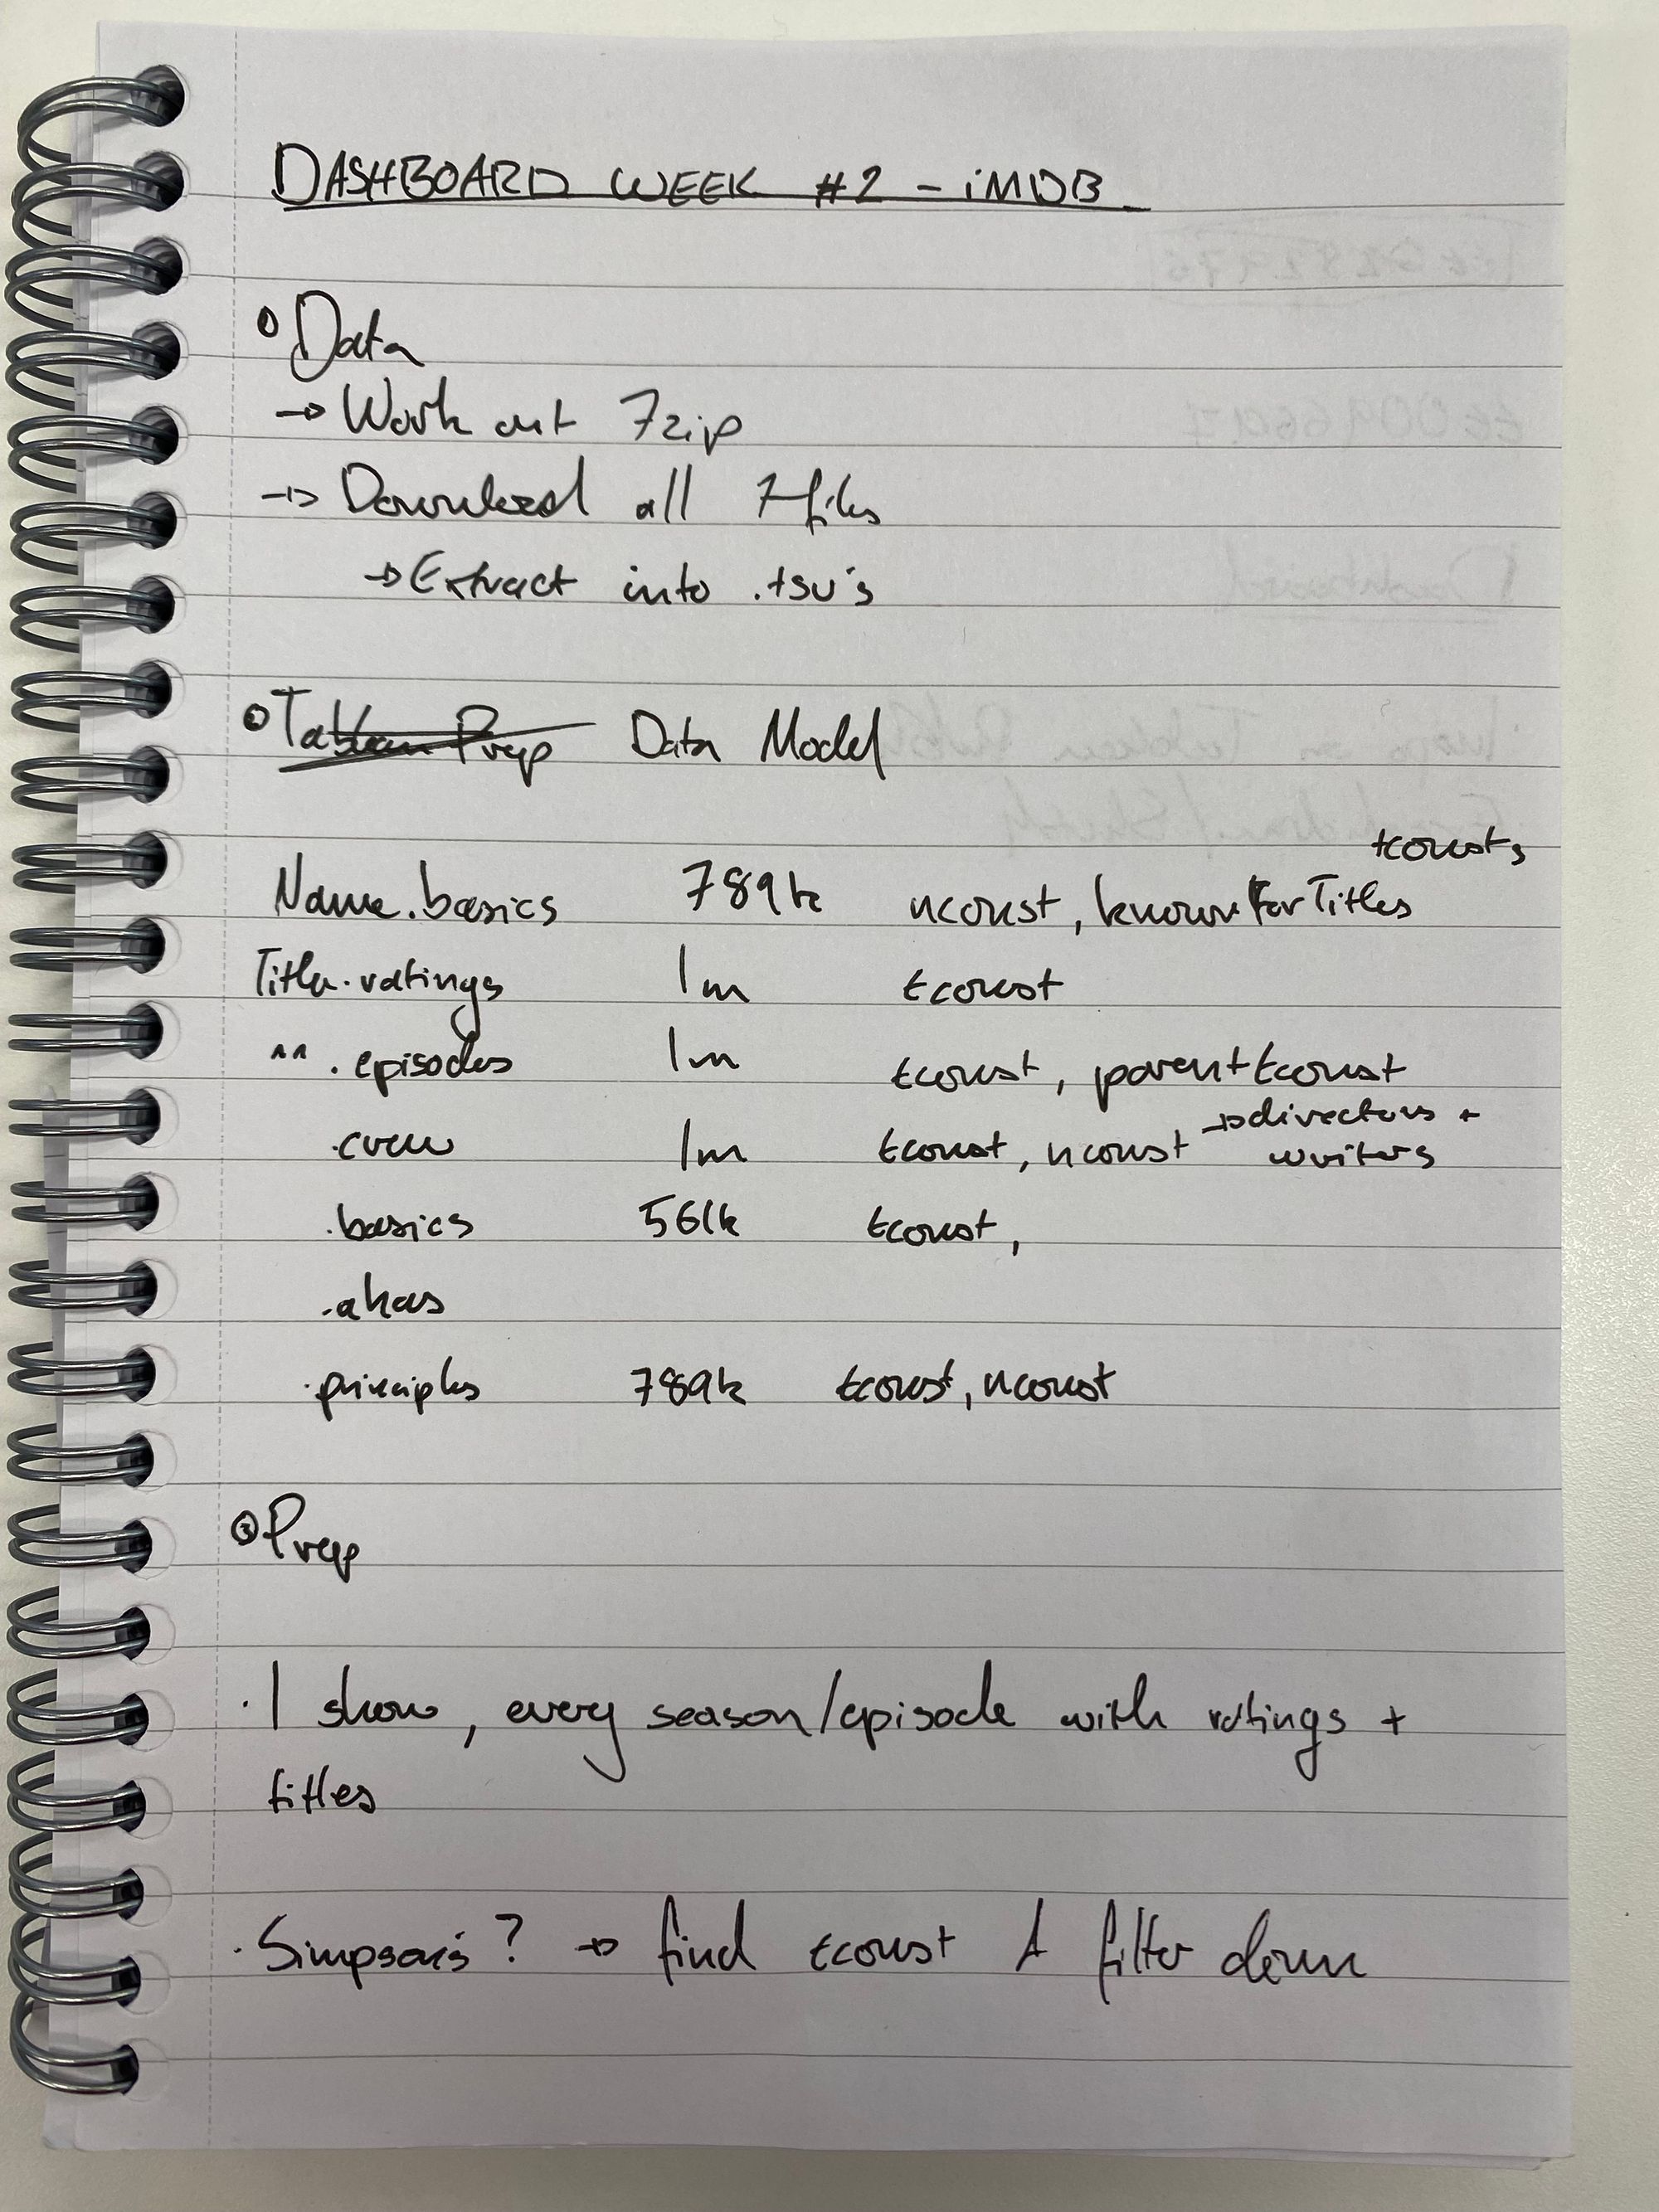 DASHBOARD WEEK #2 - iMDB
① Data
→ Work out 7zip
→ Download all 7 files
→ Extract into .tsv's
② Tableau Prep Data Model
tconsts
Name.basics 789k nconst, knownForTitles
Title.ratings 1m tconst
^^ .episodes 1m tconst, parentTconst
.crew 1m tconst, nconst → directors +
writers
.basics 561k tconst,
.akas
.principles 789k tconst, nconst
③ Prep
· 1 show, every season/episode with ratings +
titles
· Simpson's? → find tconst & filter down